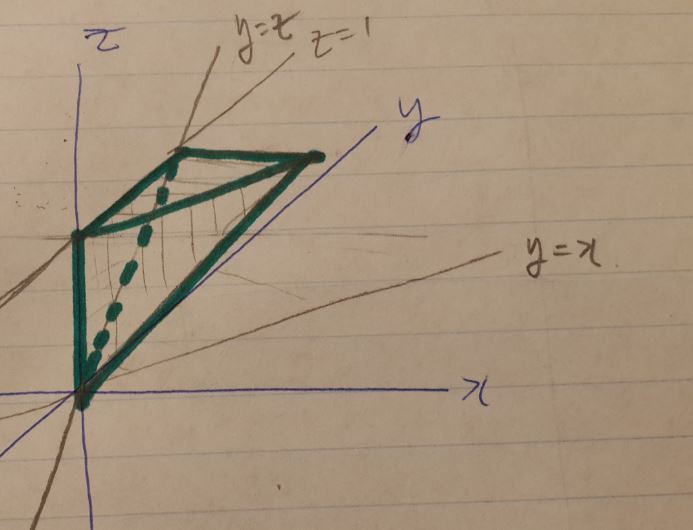 z
y=z
z=1
y
y=x
x